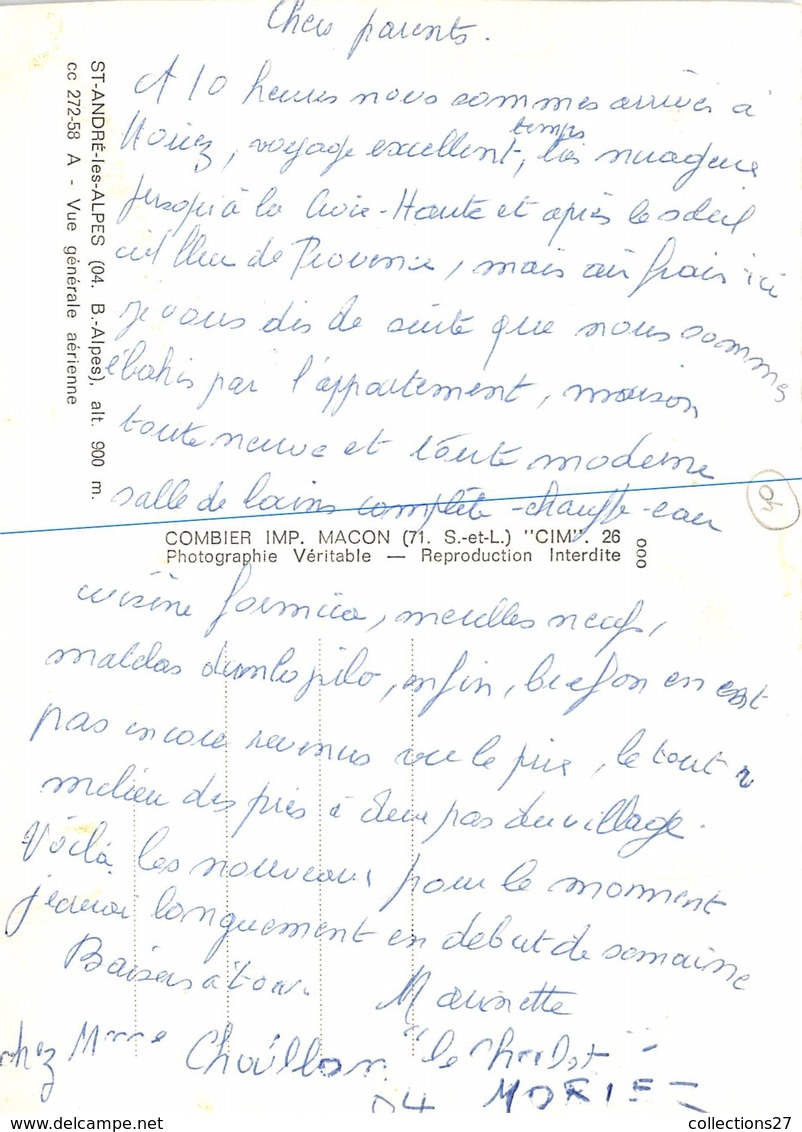 Chers parents.
A 10 heures nous sommes arrivés à
Moriez, voyage excellent, temps très nuageux
jusqu'à la Croix-Haute et après le soleil
ciel bleu de Provence, mais air frais ici
je vous dis de suite que nous sommes
ébahis par l'appartement, maison
toute neuve et toute moderne
salle de bains complète - chauffe-eau
cuisine formica, meubles neufs,
matelas dunlopilo, enfin, bref on en est
pas encore revenus vu le prix, le tout au
milieu des prés à deux pas du village.
Voilà les nouveaux pour le moment
j'écrirai longuement en début de semaine
Baisers à tous. Marinette
chez Mme "le
04 MORIEZ
ST-ANDRÉ-les-ALPES (04. B.-Alpes), alt. 900 m.
CC 272-58 A - Vue générale aérienne
COMBIER IMP. MACON (71. S.-et-L.) "CIM". 26
Photographie Véritable — Reproduction Interdite
000
04
collections27